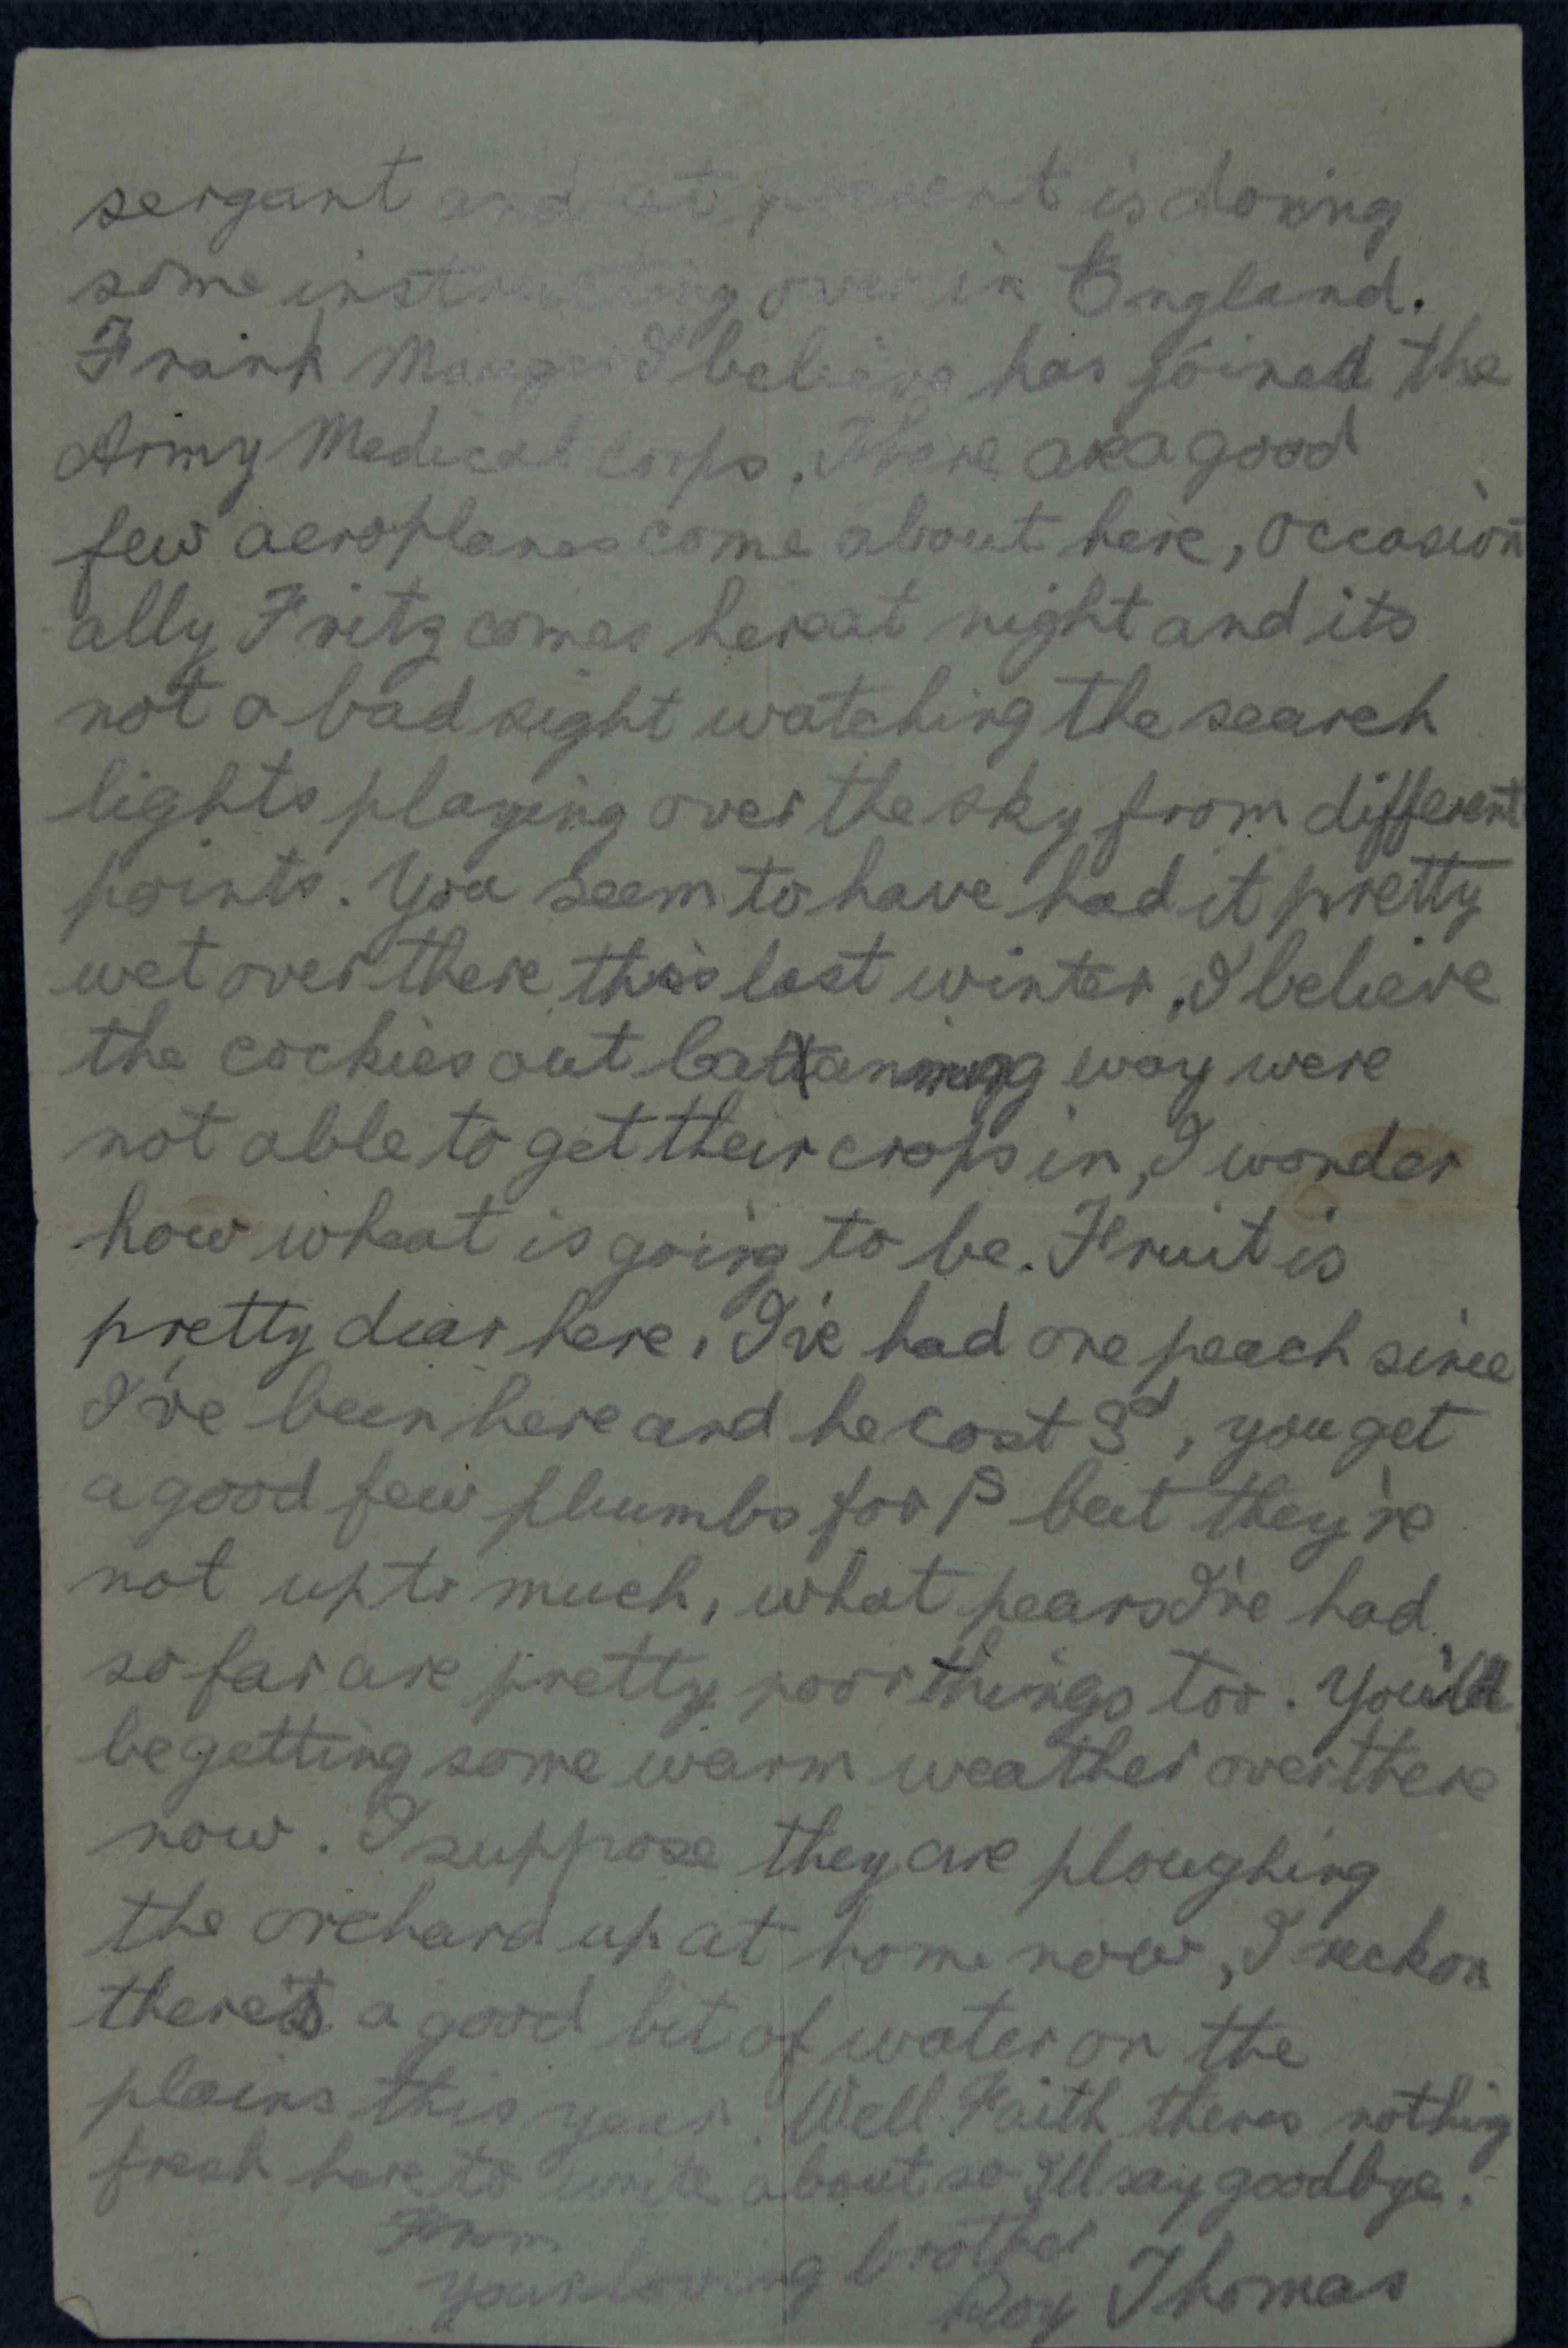 sergant and at present is doning
some instructing over in England.
Frank Mauger I believe has joined the
Army Medical Corps. There are a good
few aeroplanes come about here, occasion-
ally Fritz comes here at night and its
not a bad sight watching the search
lights playing over the sky from different
points. You seem to have had it pretty
wet over there this last winter, I believe
the cockies out way were
not able to get their crops in, I wonder
how wheat is going to be. Fruit is
pretty dear here, I've had one peach since
I've been here and he cost 3d, you get
a good few plumbs for 1/s but they're
not up to much, what pears I've had
so far are pretty poor things too. You'll
be getting some warm weather over there
now. I suppose they are ploughing
the orchard up at home now, I reckon
there's a good bit of water on the
plains this year. Well Faith theres nothing
fresh here to write about so I'll say goodbye.
From
your loving brother
Roy Thomas